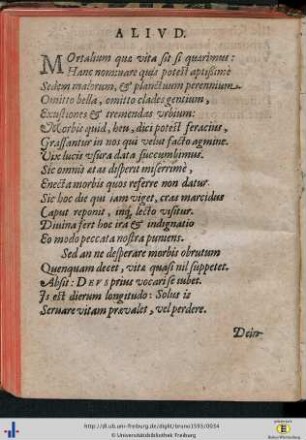 ALIVD.
MOrtalium quæ vita sit si quærimus:
Hanc nominare quis potest aptißimè
Sedem malorum, & planctuum perennium.
Omitto bella, omitto clades gentium,
Exustiones & tremendas vrbium:
Morbis quid, heu, dici potest feracius,
Grassantur in nos qui velut facto agmine.
Vix lucis vsura data succumbimus.
Sic omnis ætas disperit miserrimè,
Enecta morbis quos referre non datur.
Sic hoc die qui iam viget, cras marcidus
Caput reponit, inq; lecto visitur.
Diuina fert hoc ira & indignatio
Eo modo peccata nostra puniens.
Sed an ne desperare morbis obrutum
Quenquam decet, vitæ quasi nil suppetet.
Absit: DEVS prius vocari se iubet.
Is est dierum longitudo: Solus is
Seruare vitam præualet, vel perdere.
Dein-
http://dl.ub.uni-freiburg.de/diglit/bruno1593/0034
© Universitätsbibliothek Freiburg